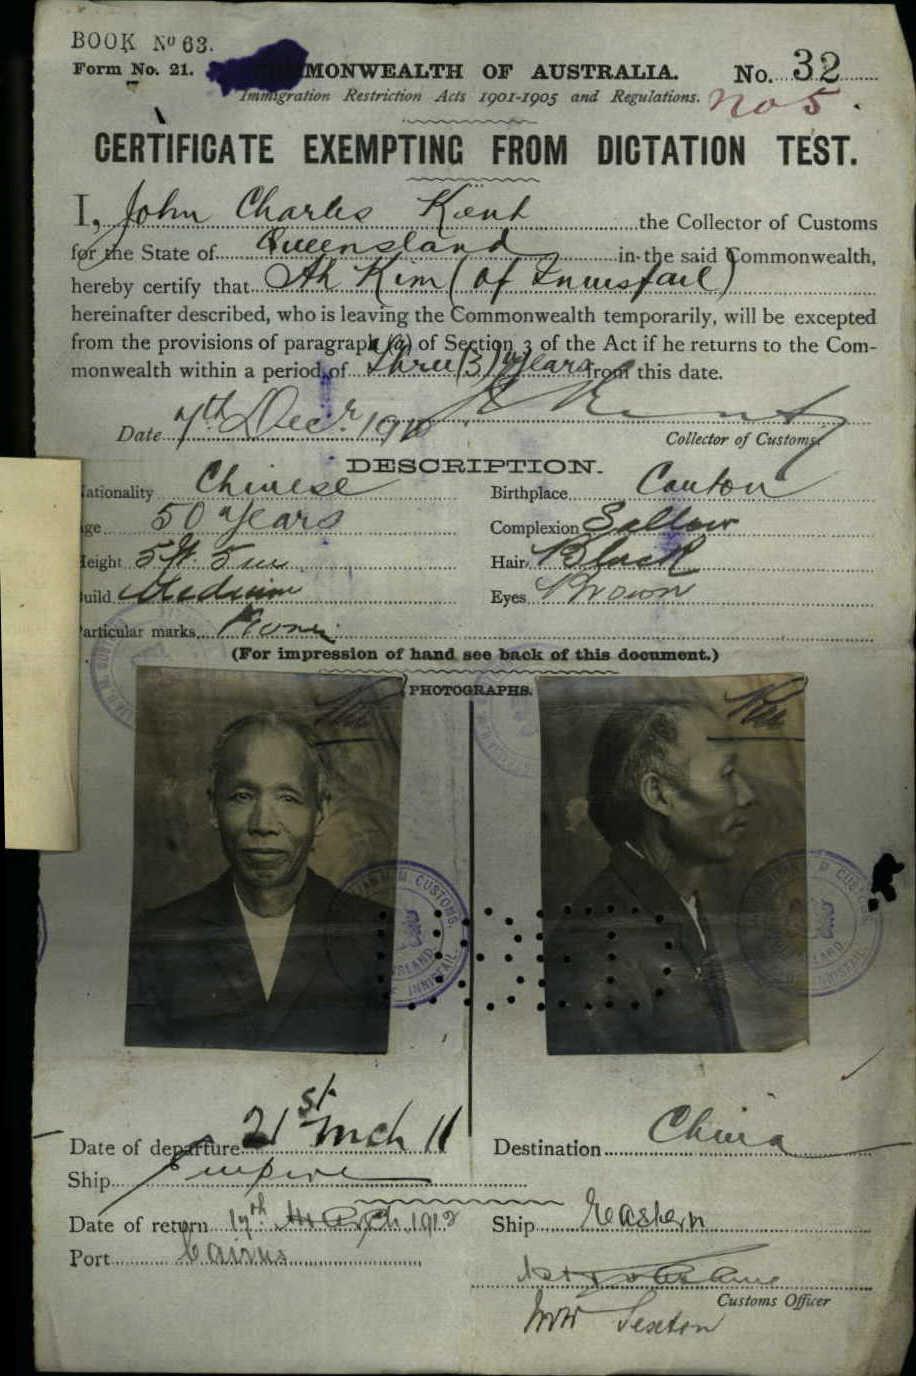 BOOK No 63.
Form No. 21. COMMONWEALTH OF AUSTRALIA. No. 32
Immigration Restriction Acts 1901-1905 and Regulations. No 5.
CERTIFICATE EXEMPTING FROM DICTATION TEST.
I, John Charles Kent the Collector of Customs
for the State of Queensland in the said Commonwealth,
hereby certify that Ah Kim (of Innisfail)
hereinafter described, who is leaving the Commonwealth temporarily, will be excepted
from the provisions of paragraph (a) of Section 3 of the Act if he returns to the Com-
monwealth within a period of Three (3) years from this date.
Date 7th Decr. 1910 Collector of Customs.
DESCRIPTION.
Nationality Chinese Birthplace Canton
Age 50 years Complexion Sallow
Height 5 ft. 5 in Hair Black
Build Medium Eyes Brown
Particular marks None
(For impression of hand see back of this document.)
PHOTOGRAPHS.
CUSTOMS
INNISFAIL
Date of departure 21st Mch 11 Destination China
Ship Empire
Date of return 17th March 1913 Ship Eastern
Port Cairns
Customs Officer
Sexton